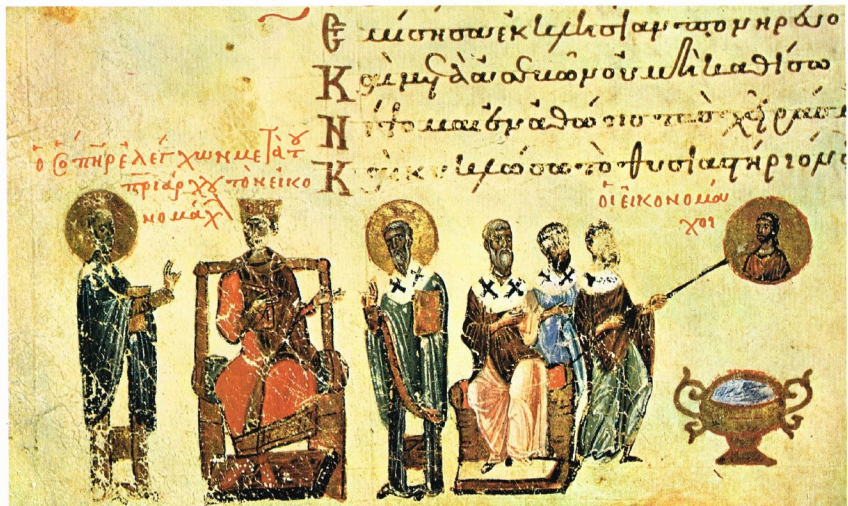 Ἐμίσησα ἐκκλησίαν πονηρευο
Καὶ μετὰ ἀσεβῶν οὐ μὴ καθίσω
Νίψομαι ἐν ἀθώοις τὰς χεῖράς μ
Καὶ κυκλώσω τὸ θυσιαστήριόν
ὁ πηρ ἐλέγχων μετὰ τ
πριάρχου τὸν εἰκο
νομάχ
οἱ εἰκονομά
χοι